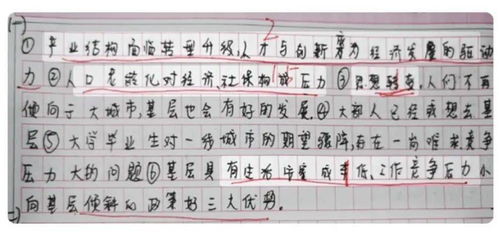 (一)
2
①产业结构面临转型升级,人才与创新变为经济发展的驱动
力②人口老龄化对经济,社保构成压力③思想转变,人们不再
倾向于大城市,基层也会有好的发展④大部人已经或想去基
层⑤大学毕业生对一线城市的期望骤降,存在一岗难求竞争
压力大的问题⑥基层具有生活压力成本低,工作竞争压力小
向基层倾斜的政策好三大优势。